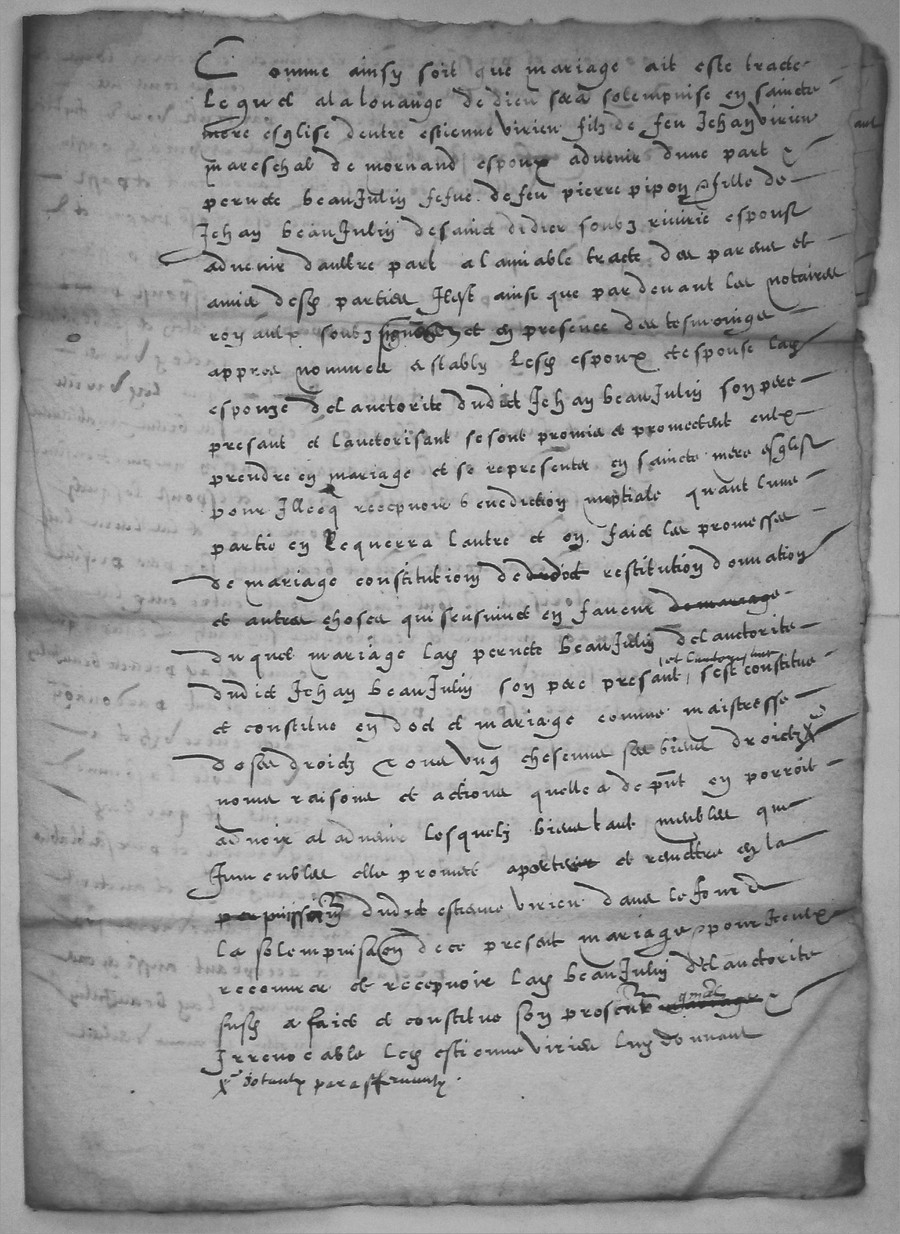 Comme ainsy soit que mariage ait este traicte
Lequel a la louange de dieu sera solempnise en saincte
mere esglise dentre estienne virieu filz de feu Jehan virieu
mareschal de mornand espoux advenir dune part
pernete beauJulin fefue de feu pierre pipon & fille de
Jehan beauJulin de sainct didier soubz rivirie espouse
advenir daultre part a lamiable traicte des parens et
amis desd parties Il est ainsi que par devant les notaires
royaulx soubz signes et en presence des tesmoings
appres nommes establys lesd espoux et espouse lad
espouze de lauctorite dudict Jehan beauJulin son pere
presant et lauctorisant se sont promis et promectent eulx
prendre en mariage et se representer en saincte mere esglise
pour Illecq recepvoir benediction nuptiale quant lune
partie en Requerra lautre et en faict les promesses
de mariage constitution de dod restitution donnation
et autres choses qui sensuivent en faveur de mariage
duquel mariage lad pernete beauJulin de lauctorite
dudict Jehan beauJulin son pere presant et lauctorisant sest constitue
et constitue en dod et mariage comme maistresse
de ses droictz & ung chescung ses biens droictz
noms raisons et actions quelle a de pnt en porroit
advoir al advenir lesquelz biens tant meubles que
Immeubles elle promect apporter et remettre en la
puissance dudict estienne virieu dans le Jour de
la solempnisaon de ce present mariage & pour Iceulx
recouvrer et recepvoir lad beauJulin de lauctorite
susd a faict et constitue son procureur
Irrevocable led estienne virieu luy donnant
X dotaulx parafernaulx